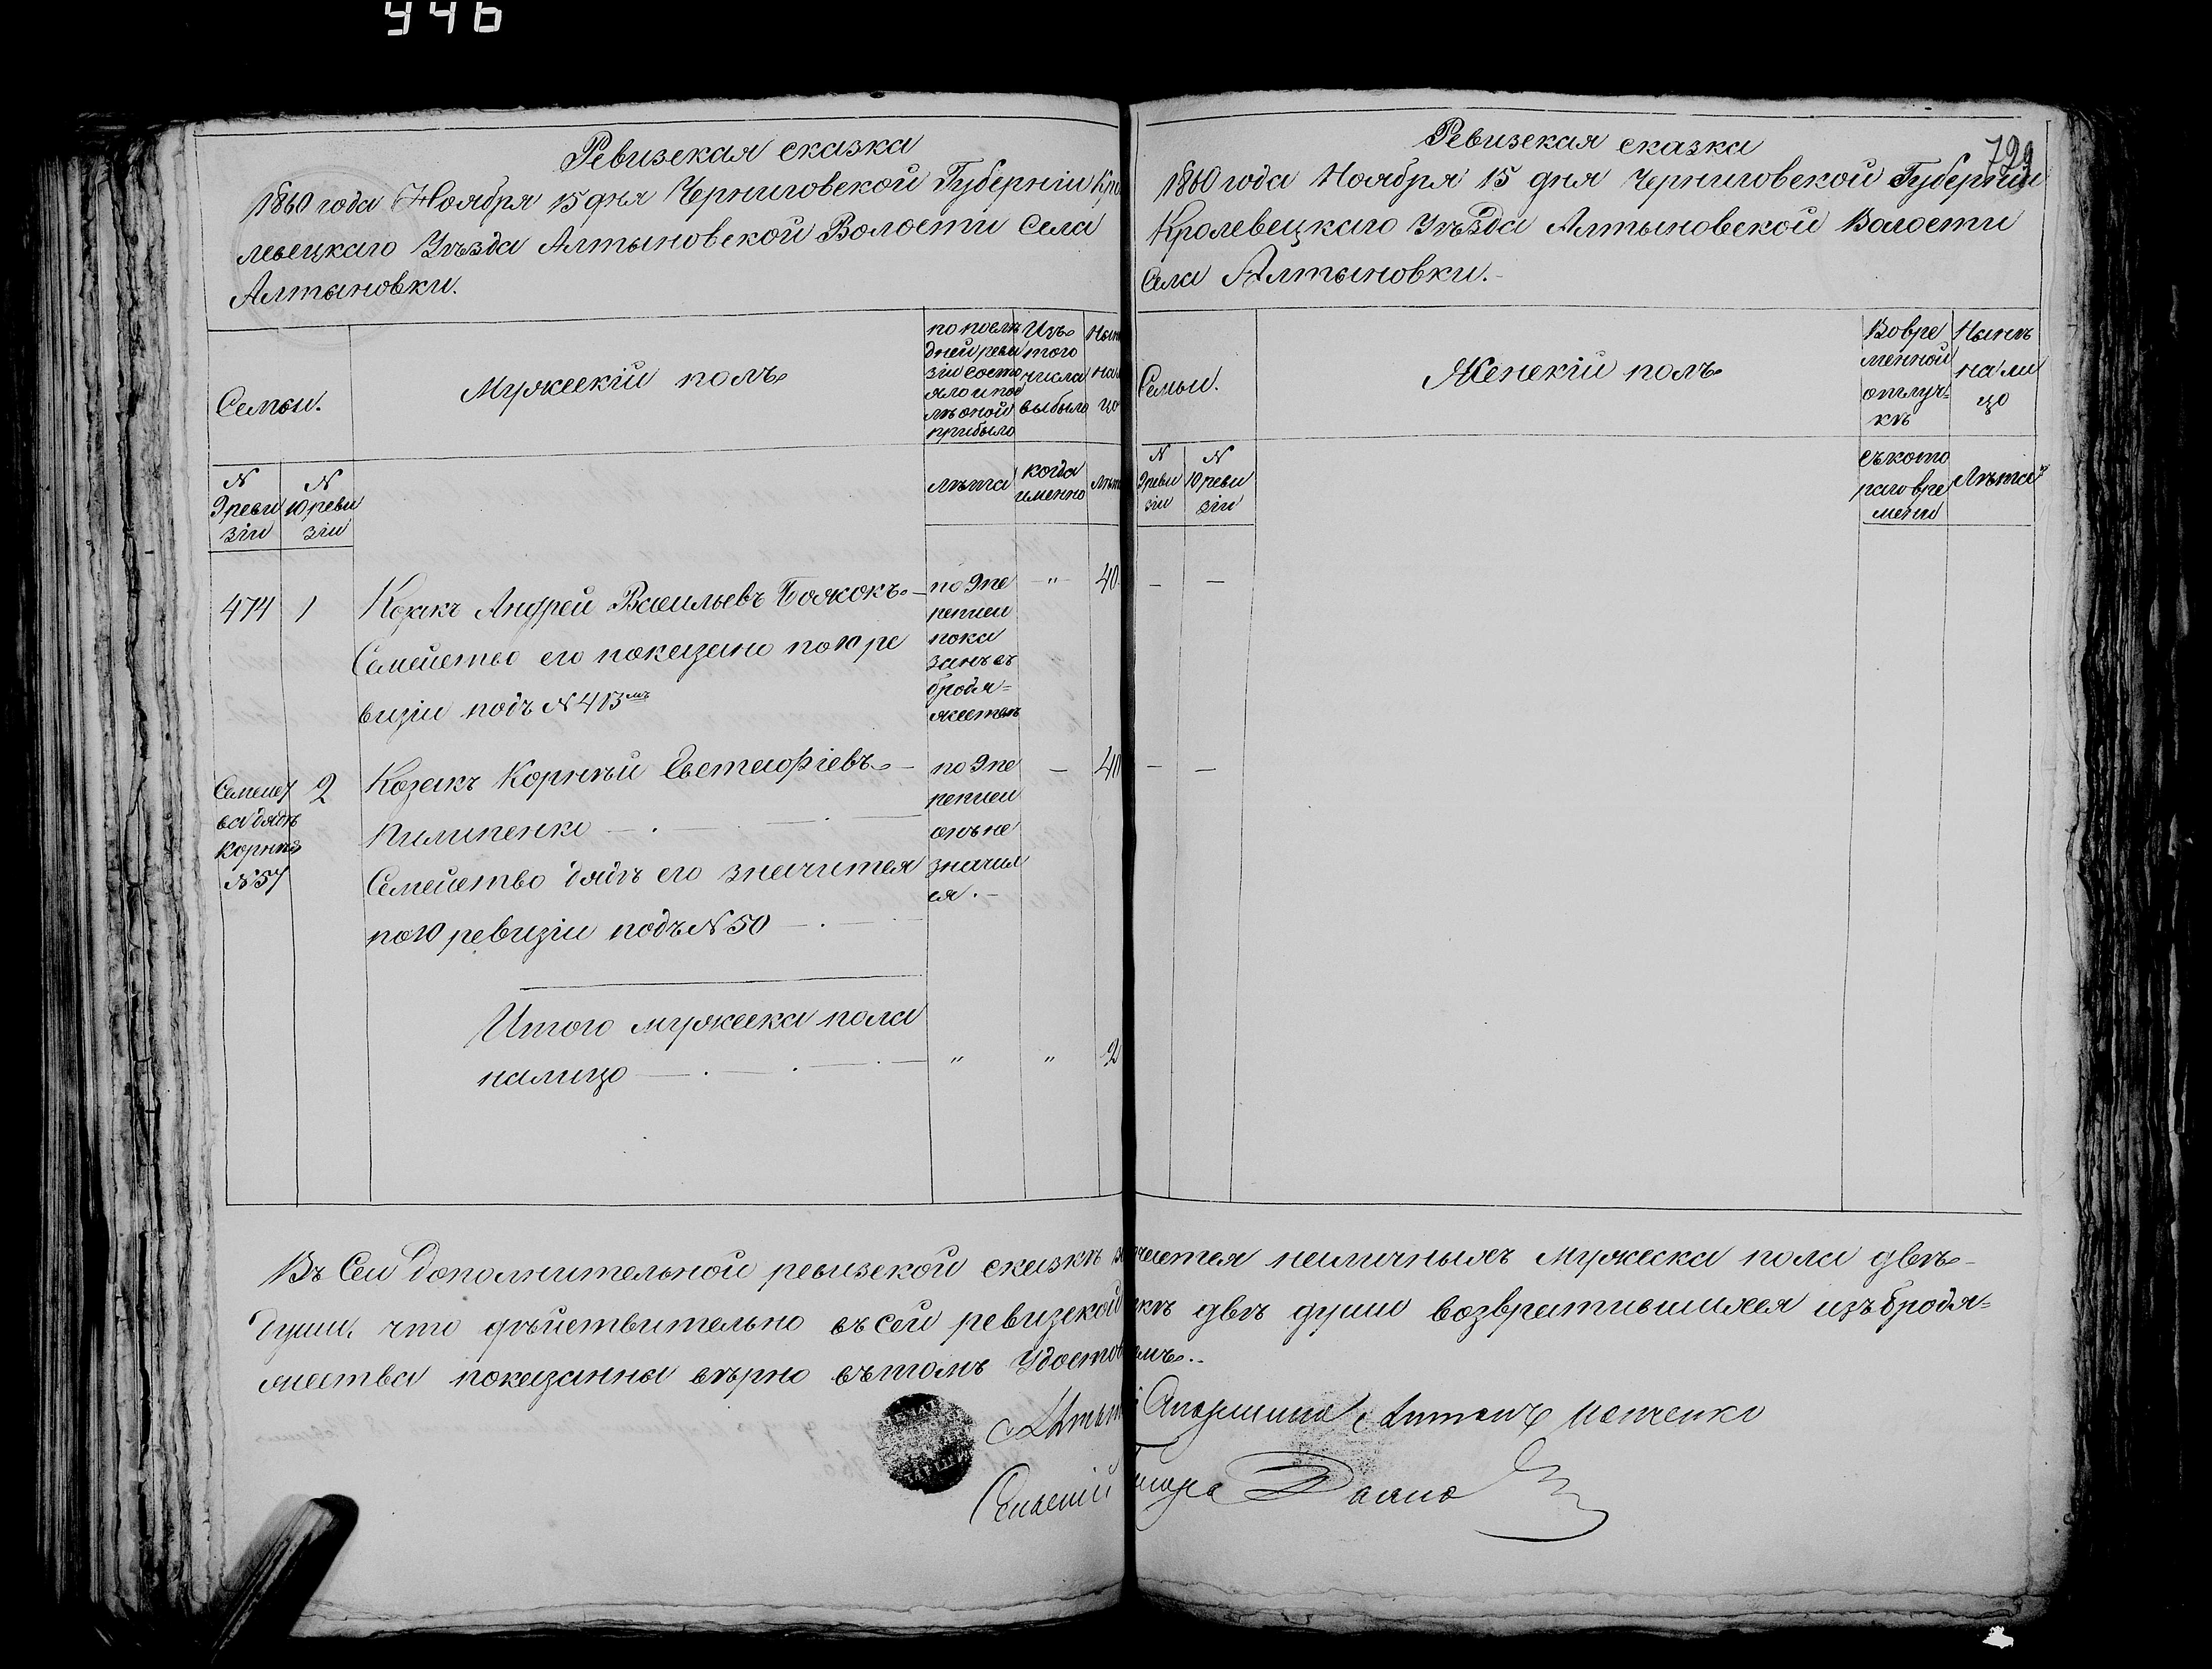 946
Ревизская сказка
1860 года Ноября 15 дня Черниговской Губерніи Кро
левецкаго Уѣзда Алтыновской Волости Села
Алтыновки.
Семьи.
Мужескій полъ
по послѣ
дней реви
зіи состо
яло и пос
лѣ оной
прибыло
Изъ
того
числа
выбыло
Нын
на
цо
N
9 реви
зіи
N
10 реви
зіи
лѣта
когда
именно
лѣт
474
1
Козакъ Андрей Васильевъ
Семейство его показано по 10 ре
визіи подъ N 413мъ
по 9 пе
реписи
пока
занъ съ
бродя=
жеств
"
40
Семей
ва дядѣ
Корнѣя
N 57
2
Козакъ Корнѣй Евстафіевъ
Пилипенко
Семейство дядѣ его значится
по 10 ревизіи подъ N 50
по 9 пе
реписи
онъ не
значил
ся.
40
Итого мужеска пола
налицо
"
"
2
Ревизская сказка
729
1860 года Ноября 15 дня Черниговской Губерніи
Кролевецкаго Уѣзда Алтыновской Волости
Села Алтыновки.
Семьи.
Женскій полъ
Вовре
менной
отлуч=
кѣ
Нынѣ
на ли
цо
N
9 реви
зіи
N
10 реви
зіи
съ кото
раго вре
мени
Лѣта
Въ Сей дополнительной ревизской сказкѣ значится наличныхъ мужеска пола двѣ
души, что дѣйствительно въ сей ревизской двѣ души возвратившихся изъ бродя=
жества показанны вѣрно въ томъ Удостов
Старшина Антонъ
Сельскій Писарь